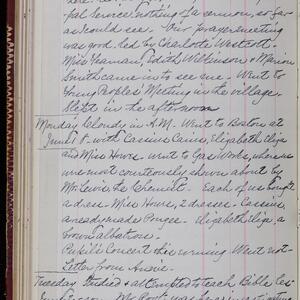 pal Service, nothing – a sermon, so far
as could see. Our prayer meeting
was good, led by Charlotte Westcott.
Miss Yeaman, Edith Wilkinson & Marion
Smith came in to see me. Went to
Young People's Meeting in the village.
Slept in the afternoon
Monday Cloudy in A.M. Went to Boston at
with Cassine Cains, Elizabeth
and Miss Howes. went to Gas Works, where we
were most courteously shown about by
Mr. Lewis, the Chemist. Each of us bought
a dress. Miss Howes, 2 dresses. Cassine,
a ready made Pongee. Elizabeth, a
brown albatross.
Pupils Concert this evening. Went not
Letter from
Tuesday Studied & attempted to teach Bible
was